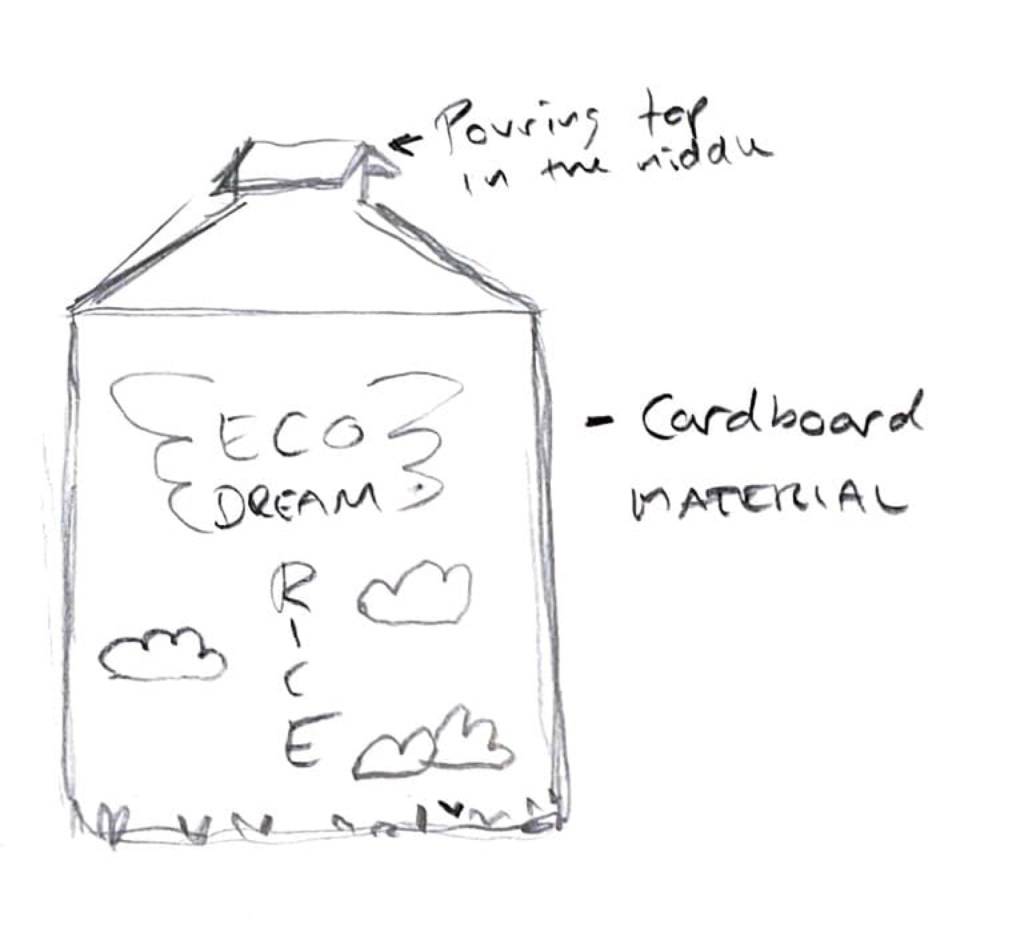 Pouring top
in the middle
ECO
DREAM
- Cardboard
MATERIAL
R
I
C
E